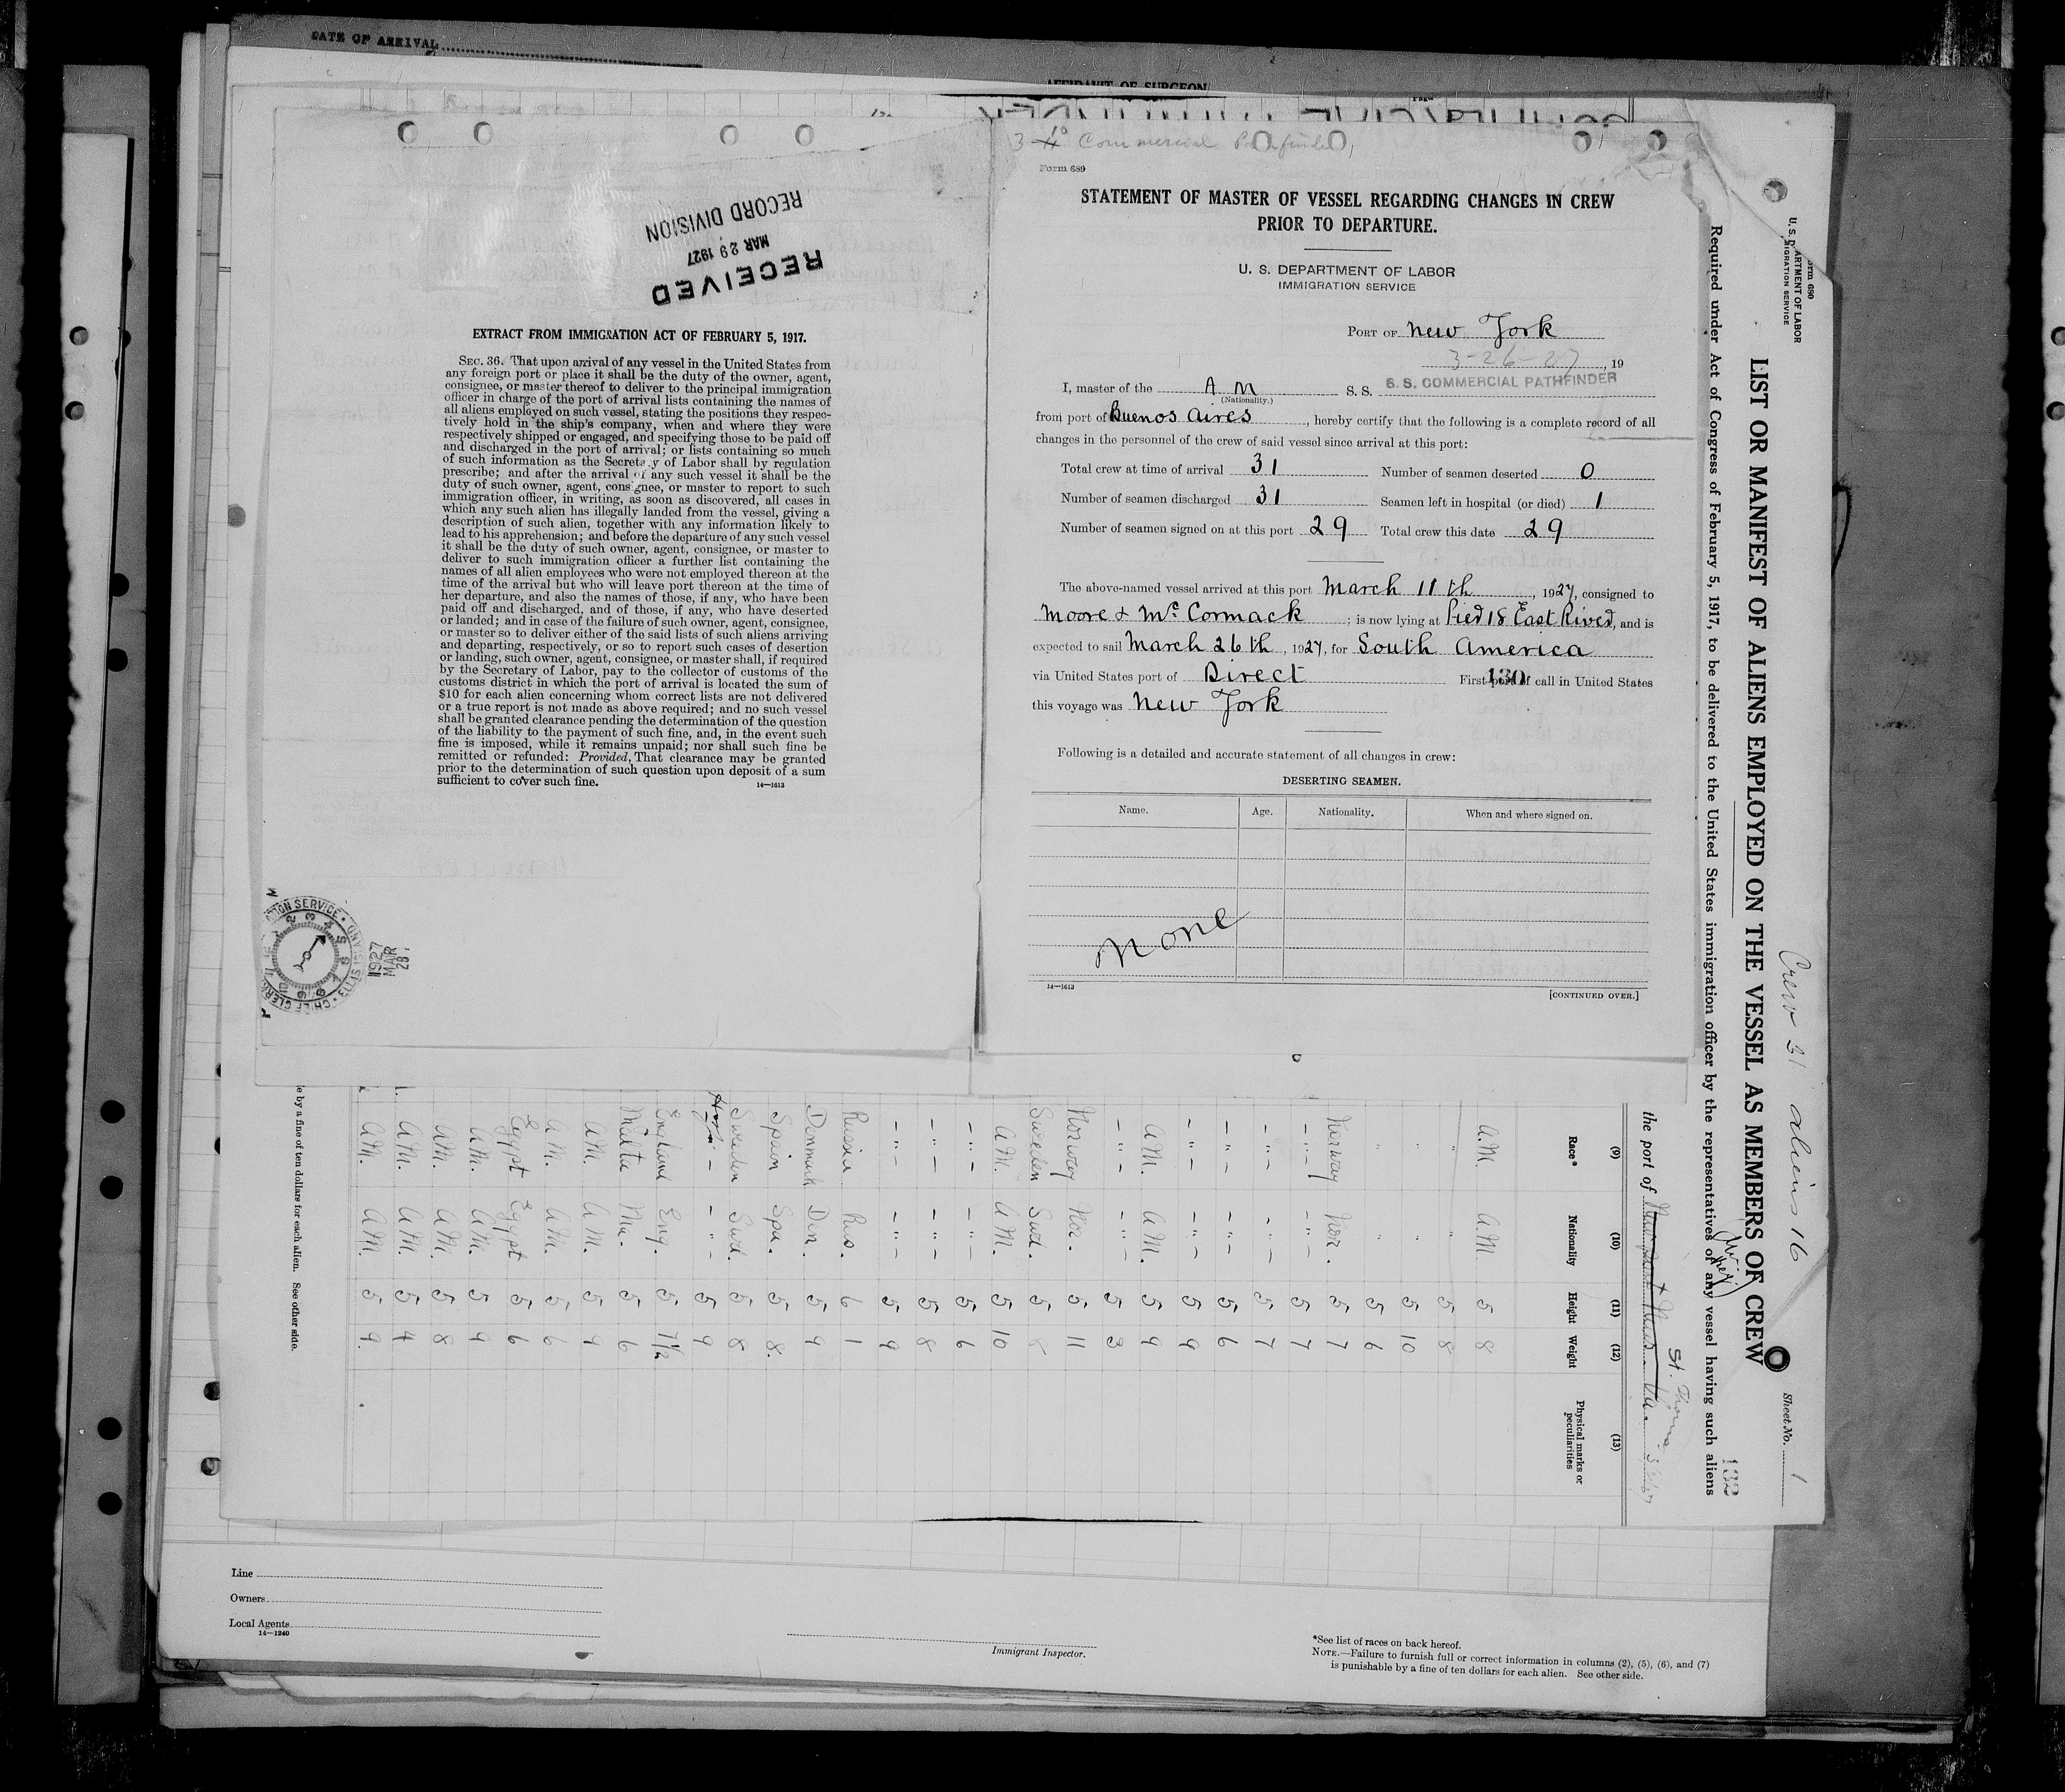 DATE OF ARRIVAL
AFFIDAVIT OF SURGEON
RECEIVED
MAR 29 1927
RECORD DIVISION
EXTRACT FROM IMMIGRATION ACT OF FEBRUARY 5, 1917.
SEC. 36. That upon arrival of any vessel in the United States from
any foreign port or place it shall be the duty of the owner, agent,
consignee, or master thereof to deliver to the principal immigration
officer in charge of the port of arrival lists containing the names of
all aliens employed on such vessel, stating the positions they respec-
tively hold in the ship's company, when and where they were
respectively shipped or engaged, and specifying those to be paid off
and discharged in the port of arrival; or lists containing so much
of such information as the Secretary of Labor shall by regulation
prescribe; and after the arrival of any such vessel it shall be the
duty of such owner, agent, consignee, or master to report to such
immigration officer, in writing, as soon as discovered, all cases in
which any such alien has illegally landed from the vessel, giving a
description of such alien, together with any information likely to
lead to his apprehension; and before the departure of any such vessel
it shall be the duty of such owner, agent, consignee, or master to
deliver to such immigration officer a further list containing the
names of all alien employees who were not employed thereon at the
time of the arrival but who will leave port thereon at the time of
her departure, and also the names of those, if any, who have been
paid off and discharged, and of those, if any, who have deserted
or landed; and in case of the failure of such owner, agent, consignee,
or master so to deliver either of the said lists of such aliens arriving
and departing, respectively, or so to report such cases of desertion
or landing, such owner, agent, consignee, or master shall, if required
by the Secretary of Labor, pay to the collector of customs of the
customs district in which the port of arrival is located the sum of
$10 for each alien concerning whom correct lists are not delivered
or a true report is not made as above required; and no such vessel
shall be granted clearance pending the determination of the question
of the liability to the payment of such fine, and, in the event such
fine is imposed, while it remains unpaid; nor shall such fine be
remitted or refunded: Provided, That clearance may be granted
prior to the determination of such question upon deposit of a sum
sufficient to cover such fine.
14—1613
1927
MAR
28
3 10 Commercial Pathfinder
Form 689
STATEMENT OF MASTER OF VESSEL REGARDING CHANGES IN CREW
PRIOR TO DEPARTURE.
U. S. DEPARTMENT OF LABOR
IMMIGRATION SERVICE
PORT OF New York
3-26-27, 19
I, master of the A M S. S. S. S. COMMERCIAL PATHFINDER
(Nationality.)
from port of Buenos Aires, hereby certify that the following is a complete record of all
changes in the personnel of the crew of said vessel since arrival at this port:
Total crew at time of arrival 31 Number of seamen deserted 0
Number of seamen discharged 31 Seamen left in hospital (or died) 1
Number of seamen signed on at this port 29 Total crew this date 29
The above-named vessel arrived at this port March 11th, 1927, consigned to
Moore & McCormack; is now lying at Pier 18 East River, and is
expected to sail March 26th, 1927, for South America
via United States port of Direct First port of call in United States
130
this voyage was New York
Following is a detailed and accurate statement of all changes in crew:
DESERTING SEAMEN.
Name. Age. Nationality. When and where signed on.
None
14—1613
[CONTINUED OVER.]
Form 680
U. S. DEPARTMENT OF LABOR
IMMIGRATION SERVICE
Crew 31 aliens 16
Sheet No. 1
LIST OR MANIFEST OF ALIENS EMPLOYED ON THE VESSEL AS MEMBERS OF CREW
132
Required under Act of Congress of February 5, 1917, to be delivered to the United States immigration officer by the representatives of any vessel having such aliens
the port of
St. Thomas
(9) (10) (11) (12) (13)
Race* Nationality Height Weight Physical marks or peculiarities
A.M. A.M 5 8
" " 5 8
" " 5 10
" " 5 6
Norway Nor. 5 7
-"- -"- 5 7
-"- -"- 5 7
-"- -"- 5 6
-"- -"- 5 9
A.M. A.M. 5 9
-"- -"- 5 3
Norway Nor. 5 11
Sweden Swd. 5 8
A.M. A.M. 5 10
-"- -"- 5 6
-"- -"- 5 8
-"- -"- 5 9
Russia Rus. 6 1
Denmark Den. 5 9
Spain Spa. 5 8.
Sweden Swd. 5 8
-"- -"- 5 9
England Eng. 5 7 1/2
Malta Ma. 5 6
A.M. A.M. 5 9
A.M. A.M. 5 6
Egypt Egypt 5 6
A.M. A.M. 5 9
A.M. A.M. 5 8
A.M. A.M. 5 7
A.M. A.M. 5 9.
e by a fine of ten dollars for each alien. See other side.
Line
Owners
Local Agents
14—1240
Immigrant Inspector.
*See list of races on back hereof.
NOTE.—Failure to furnish full or correct information in columns (2), (5), (6), and (7)
is punishable by a fine of ten dollars for each alien. See other side.